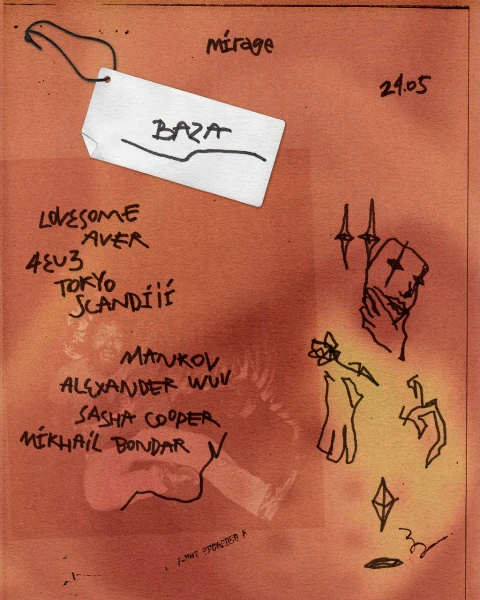 mirage
24.05
BAZA
LOVESOME
AVER
4EU3
TOKYO
SCANDÍÍÍ
MANKOV
ALEXANDER WUU
SASHA COOPER
MIKHAIL BONDAR